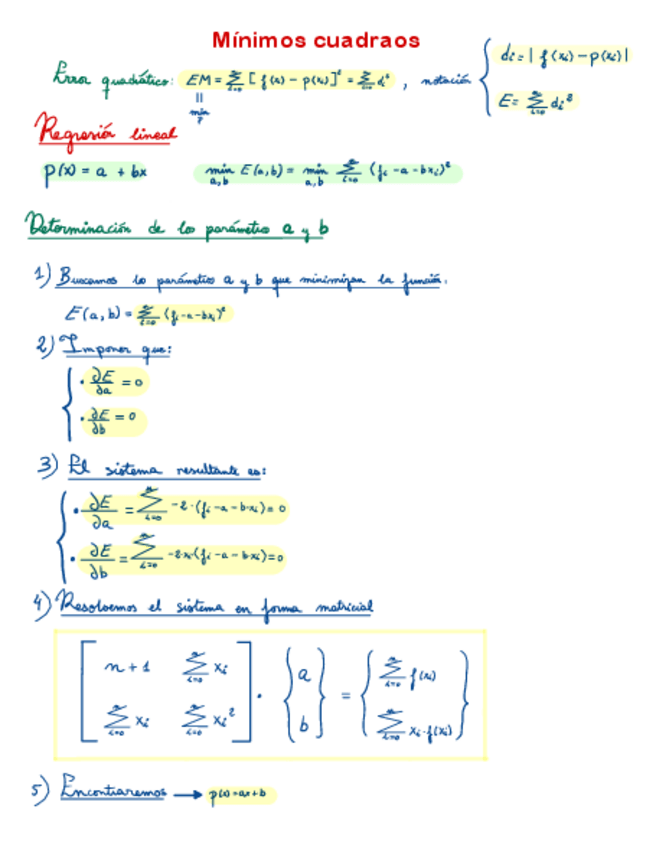 Mínimos cuadraos
Error quadrático: EM = Σⁿᵢ₌₀ [f(xᵢ) - p(xᵢ)]² = Σⁿᵢ₌₀ dᵢ² , notación { dᵢ = | f(xᵢ) - p(xᵢ) |
E = Σⁿᵢ₌₀ dᵢ²
=
min
Regresión lineal
p(x) = a + bx min a,b E(a,b) = min a,b Σⁿᵢ₌₀ (fᵢ - a - bxᵢ)²
Determinación de los parámetros a y b
1) Buscamos los parámetros a y b que minimizan la función.
E(a,b) = Σⁿᵢ₌₀ (fᵢ - a - bxᵢ)²
2) Imponer que:
· ∂E/∂a = 0
· ∂E/∂b = 0
3) El sistema resultante es:
· ∂E/∂a = Σⁿᵢ₌₀ -2·(fᵢ - a - b·xᵢ) = 0
· ∂E/∂b = Σⁿᵢ₌₀ -2·xᵢ(fᵢ - a - b·xᵢ) = 0
4) Resolvemos el sistema en forma matricial
[ n + 1 Σⁿᵢ₌₀ xᵢ ] · { a } = { Σⁿᵢ₌₀ f(xᵢ) }
[ Σⁿᵢ₌₀ xᵢ Σⁿᵢ₌₀ xᵢ² ] { b } { Σⁿᵢ₌₀ xᵢ·f(xᵢ) }
5) Encontraremos → p(x) = ax + b